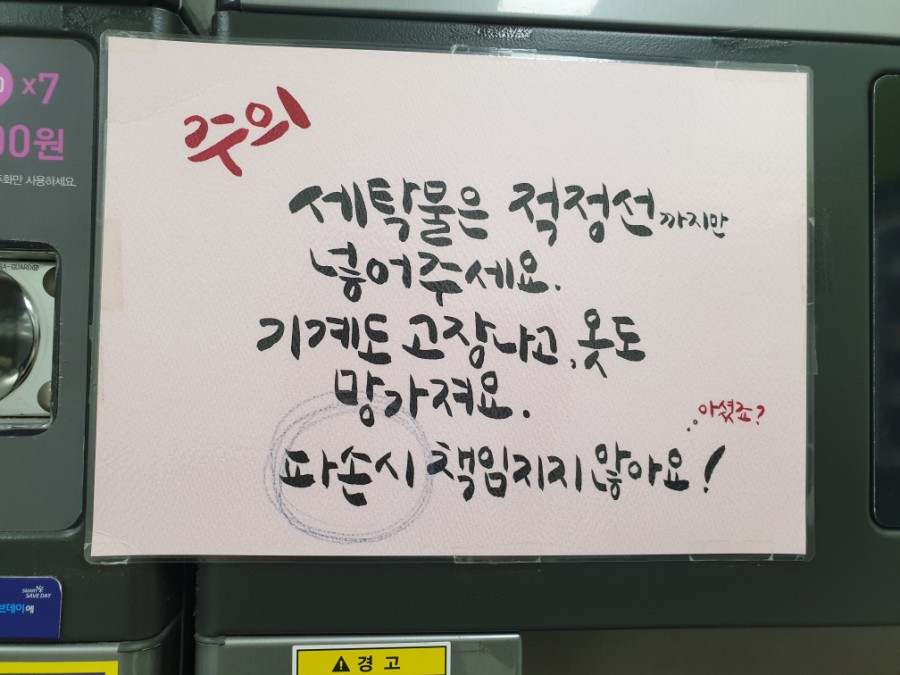 x7
00원
두화만 사용하세요.
주의
세탁물은 적정선까지만
넣어주세요.
기계도 고장나고, 옷도
망가져요.
..아셨죠?
파손시 책임지지 않아요!
SMART
SAVE DAY
브데이에
경고